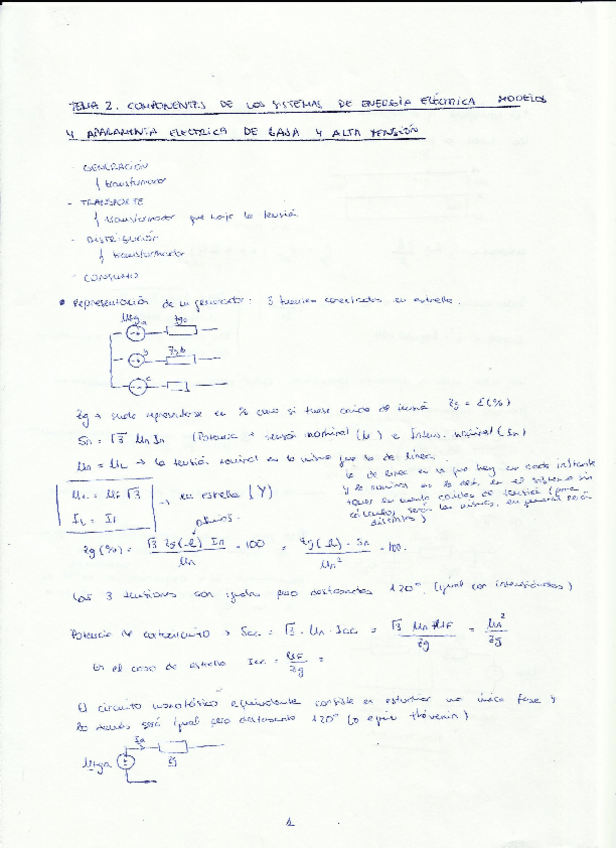 TEMA 2. COMPONENTES DE LOS SISTEMAS DE ENERGÍA ELÉCTRICA MODELOS
Y APARAMENTA ELECTRICA DE BAJA Y ALTA TENSIÓN
- GENERACIÓN
transformador
- TRANSPORTE
transformador que baje la tensión
- DISTRIBUCIÓN
transformador
- CONSUMO
• Representación de un generador: 3 tensiones conectadas en estrella.
b
c
Zg → suele representarse en % como si fuese caída de tensión Zg = Ɛ(%)
Sn = √3 Un In (Potencia → tensión nominal (Un) e Intens. nominal (In)
Un = UL → la tensión nominal es la misma que la de línea.
la de línea es la que hay en cada instante
y la nominal es la del sistema sin
tener en cuenta caídas de tensión (para
cálculos serán las mismas, en general serán
distintas)
UL = UF √3
IL = IF
→ en estrella (Y)
ohmios.
Zg(%) = √3 Zg(Ω) In / Un · 100 = Zg(Ω) · Sn / Un² · 100.
Las 3 tensiones son iguales pero desfasadas 120°. (igual con intensidades)
Potencia de cortocircuito → Scc = √3 · Un · Icc = √3 Un UF / Zg = Un² / Zg
En el caso de estrella Icc = UF / Zg =
El circuito monofásico equivalente consiste en estudiar una única fase y
lo demás será igual pero desfasado 120° (o equiv thévenin)
Ia
Uga
Zg
1